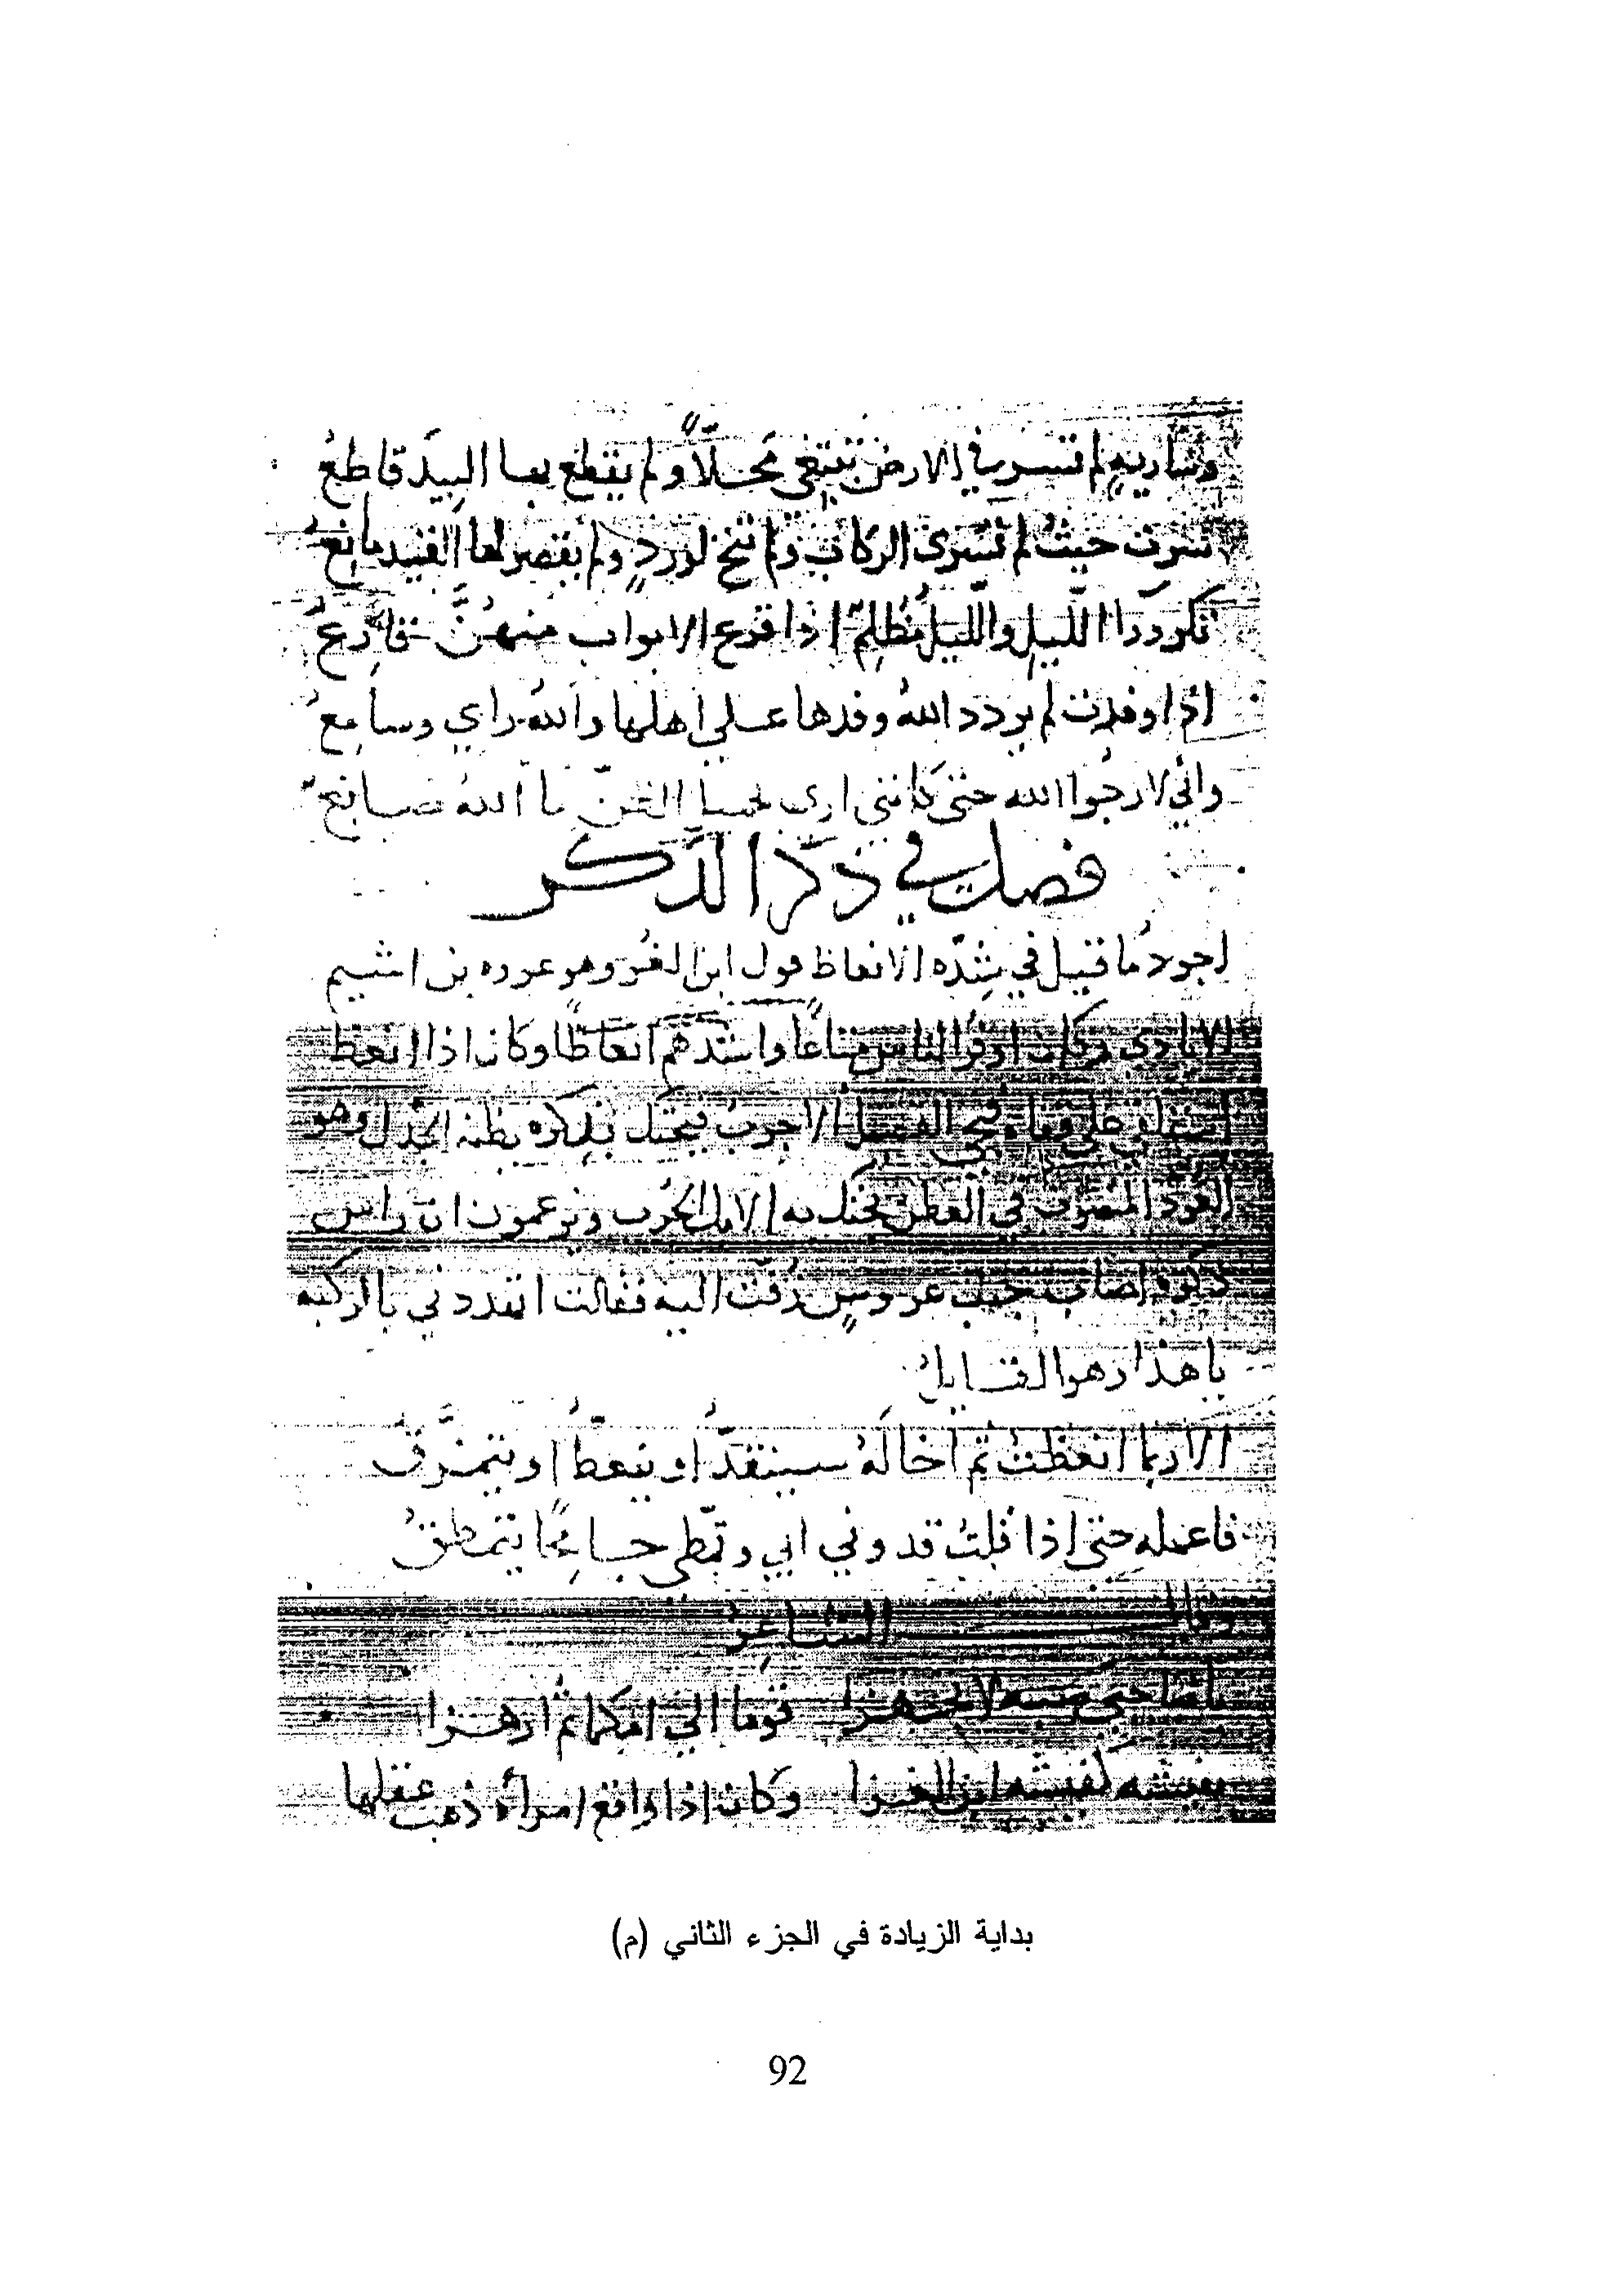 وسارية لم تسر في الارض تبتغي محلا ولم يقطع بها البيد قاطع
سرت حيث لم تسري الركاب ولم تنخ لورد ولم يقصر لها القيد مانع
تكر وراا الليل والليل مظلم اذا قرع الابواب منهن قارع
اذا وفدت لم يردد الله وفدها علي اهلها والله راي وسامع
واني لارجوا الله حتى كانني اري لجميل الظن ما الله صانع
فصل في ذكر الذكر
اجود ما قيل في شده الانعاظ قول ابن الغز وهو عوره بن اشيم
الايادي وكان اوفر الناس متاعا واشدهم انعاظا وكان اذا انعظ
استلقي علي قفاه فيجي الفصيل الاجرب فيحتك بذكره يظنه الجذل وهو
العود المنصوب في العطن تحتك به الابل الجرب ويزعمون ان راس
ذكره اصاب جنب عروس زفت اليه فقالت اتهددني بالركبه
يا هذا وهو القايل
الا ربما انعظت ثم اخاله سينقد او ينعط او يتمزق
فاعمله حتى اذا قلت قد وني ابي وتمطى جامحا يتمطق
وقال الشاعر
قوما الي امكما ثم ارهزا
وكان اذا واقع امراة ذهب عقلها
بداية الزيادة في الجزء الثاني (م)
92